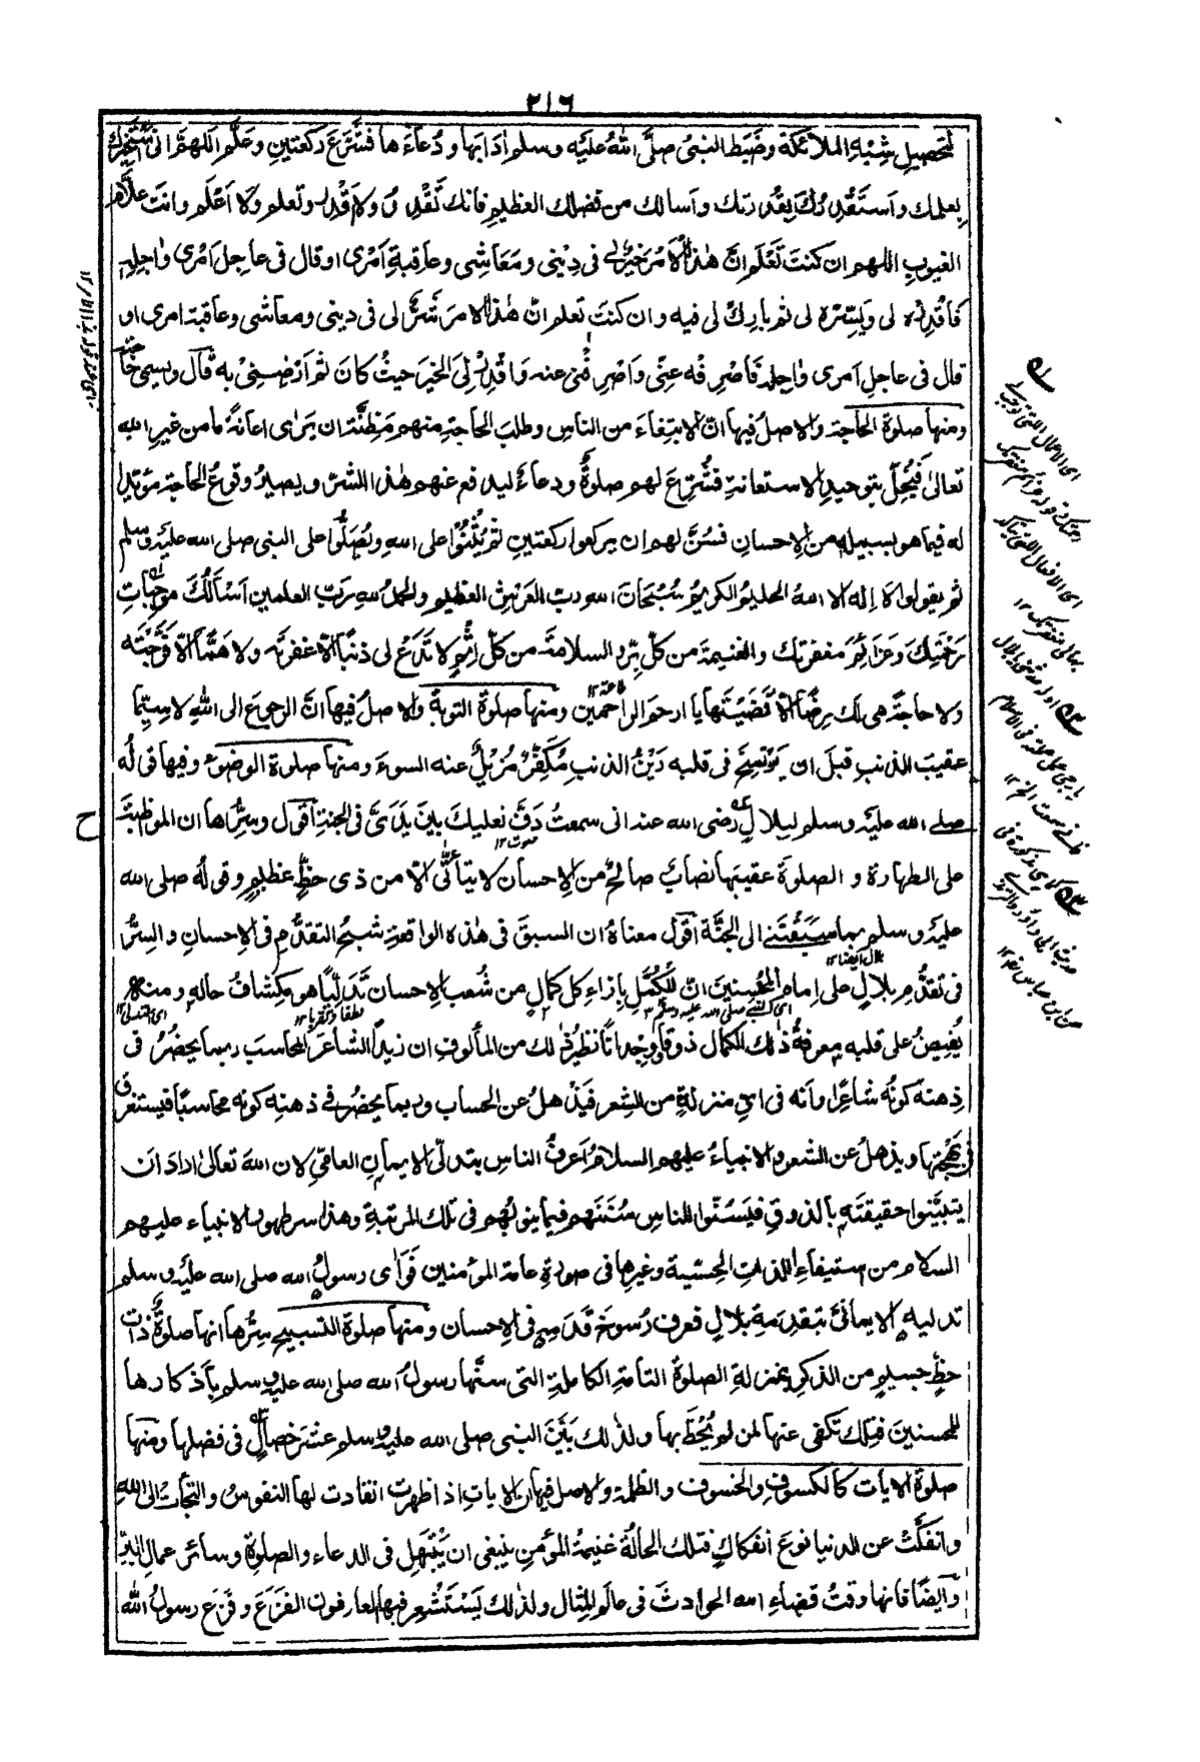 ٢١٦
لتحصيل شبه الملائكة وضبط النبى صلى الله عليه وسلم اٰدابها ودعاءها فشرع ركعتين وعلم اللهم انى استخيرك
بعلمك واستقدرك بقدرتك واسالك من فضلك العظيم فانك تقدر ولا اقدر وتعلم ولا اعلم وانت علام
الغيوب اللهم ان كنت تعلم ان هٰذا الامر خير لى فى دينى ومعاشى وعاقبة امرى او قال فى عاجل امرى واٰجله
فاقدره لى ويسره لى ثم بارك لى فيه وان كنت تعلم ان هٰذا الامر شر لى فى دينى ومعاشى وعاقبة امرى او
قال فى عاجل امرى واٰجله فاصرفه عنى واصرفنى عنه واقدر لى الخير حيث كان ثم ارضنى به قال ويسمى حاجته
ومنها صلوة الحاجة والاصل فيها ان الابتغاء من الناس وطلب الحاجة منهم مظنة ان يرى اعانة ما من غير الله
تعالىٰ فيخل بتوحيد الاستعانة فشرع لهم صلوة ودعاء ليدفع عنهم هٰذا الشر ويصير وقوع الحاجة مؤيدا
له فيما هو بسبيله من الاحسان فسن لهم ان يركعوا ركعتين ثم يثنوا على الله ويصلوا على النبى صلى الله عليه وسلم
ثم يقولوا لا إله الا الله الحليم الكريم سبحان الله رب العرش العظيم والحمد لله رب العلمين اسألك موجبات
رحمتك وعزائم مغفرتك والغنيمة من كل بر والسلامة من كل اثم لا تدع لى ذنبا الا غفرته ولا هما الا فرجته
ولا حاجة هى لك رضا الا قضيتها يا ارحم الراحمين ومنها صلوة التوبة والاصل فيها ان الرجوع الى الله لا سيما
عقيب الذنب قبل ان يرتسخ فى قلبه رين الذنب مكفر مزيل عنه السوء ومنها صلوة الوضوء وفيها قوله
صلى الله عليه وسلم لبلال رضى الله عنه انى سمعت دف نعليك بين يدى فى الجنة اقول وسرها ان المواظبة
على الطهارة والصلوة عقيبها نصاب صالح من الاحسان لا يتأتى الا من ذى حظ عظيم وقوله صلى الله
عليه وسلم بما سبقتنى الى الجنة اقول معناه ان السبق فى هٰذه الواقعة شبح التقدم فى الاحسان والسر
فى تقدم بلال على إمام المحسنين ان للكمل بإزاء كل كمال من شعب الاحسان تدليا هو مكشاف حاله ومنه
يفيض على قلبه معرفة ذٰلك الكمال ذوقا ووجدانا نظير ذٰلك من المألوف ان زيدا الشاعر المحاسب ربما يحضر فى
ذهنه كونه شاعرا وانه فى اى منزلة من الشعر فيذهل عن الحساب وربما يحضر فى ذهنه كونه محاسبا فيستغرق
فى بهجتها ويذهل عن الشعر والانبياء عليهم السلام اعرف الناس بتدلى الايمان العامى لان الله تعالىٰ اراد ان
يتبينوا حقيقته بالذوق فيسنوا للناس سنتهم فيما ينوبهم فى تلك المرتبة وهٰذا سر ظهور الانبياء عليهم
السلام من استيفاء اللذات الحسية وغيرها فى صورة عامة المؤمنين فرأى رسول الله صلى الله عليه وسلم
تدليه الايمانى بتقدمة بلال فعرف رسوخ قدمه فى الاحسان ومنها صلوة التسبيح سرها انها صلوة ذات
حظ جسيم من الذكر بمنزلة الصلوة التامة الكاملة التى سنها رسول الله صلى الله عليه وسلم باذكارها
للمحسنين فتلك تكفى عنها لمن لم يحظ بها ولذٰلك بين النبى صلى الله عليه وسلم عشر خصال فى فضلها ومنها
صلوة الاٰيات كالكسوف والخسوف والظلمة والاصل فيها ان الاٰيات اذا ظهرت انقادت لها النفوس والتجأت الى الله
وانفكت عن الدنيا نوع انفكاك فتلك الحالة غنيمة المؤمن ينبغى ان يبتهل فى الدعاء والصلوة وسائر اعمال البر
وايضا فانها وقت قضاء الله الحوادث فى عالم المثال ولذٰلك يستشعر فيها العارفون الفزع وفزع رسول الله